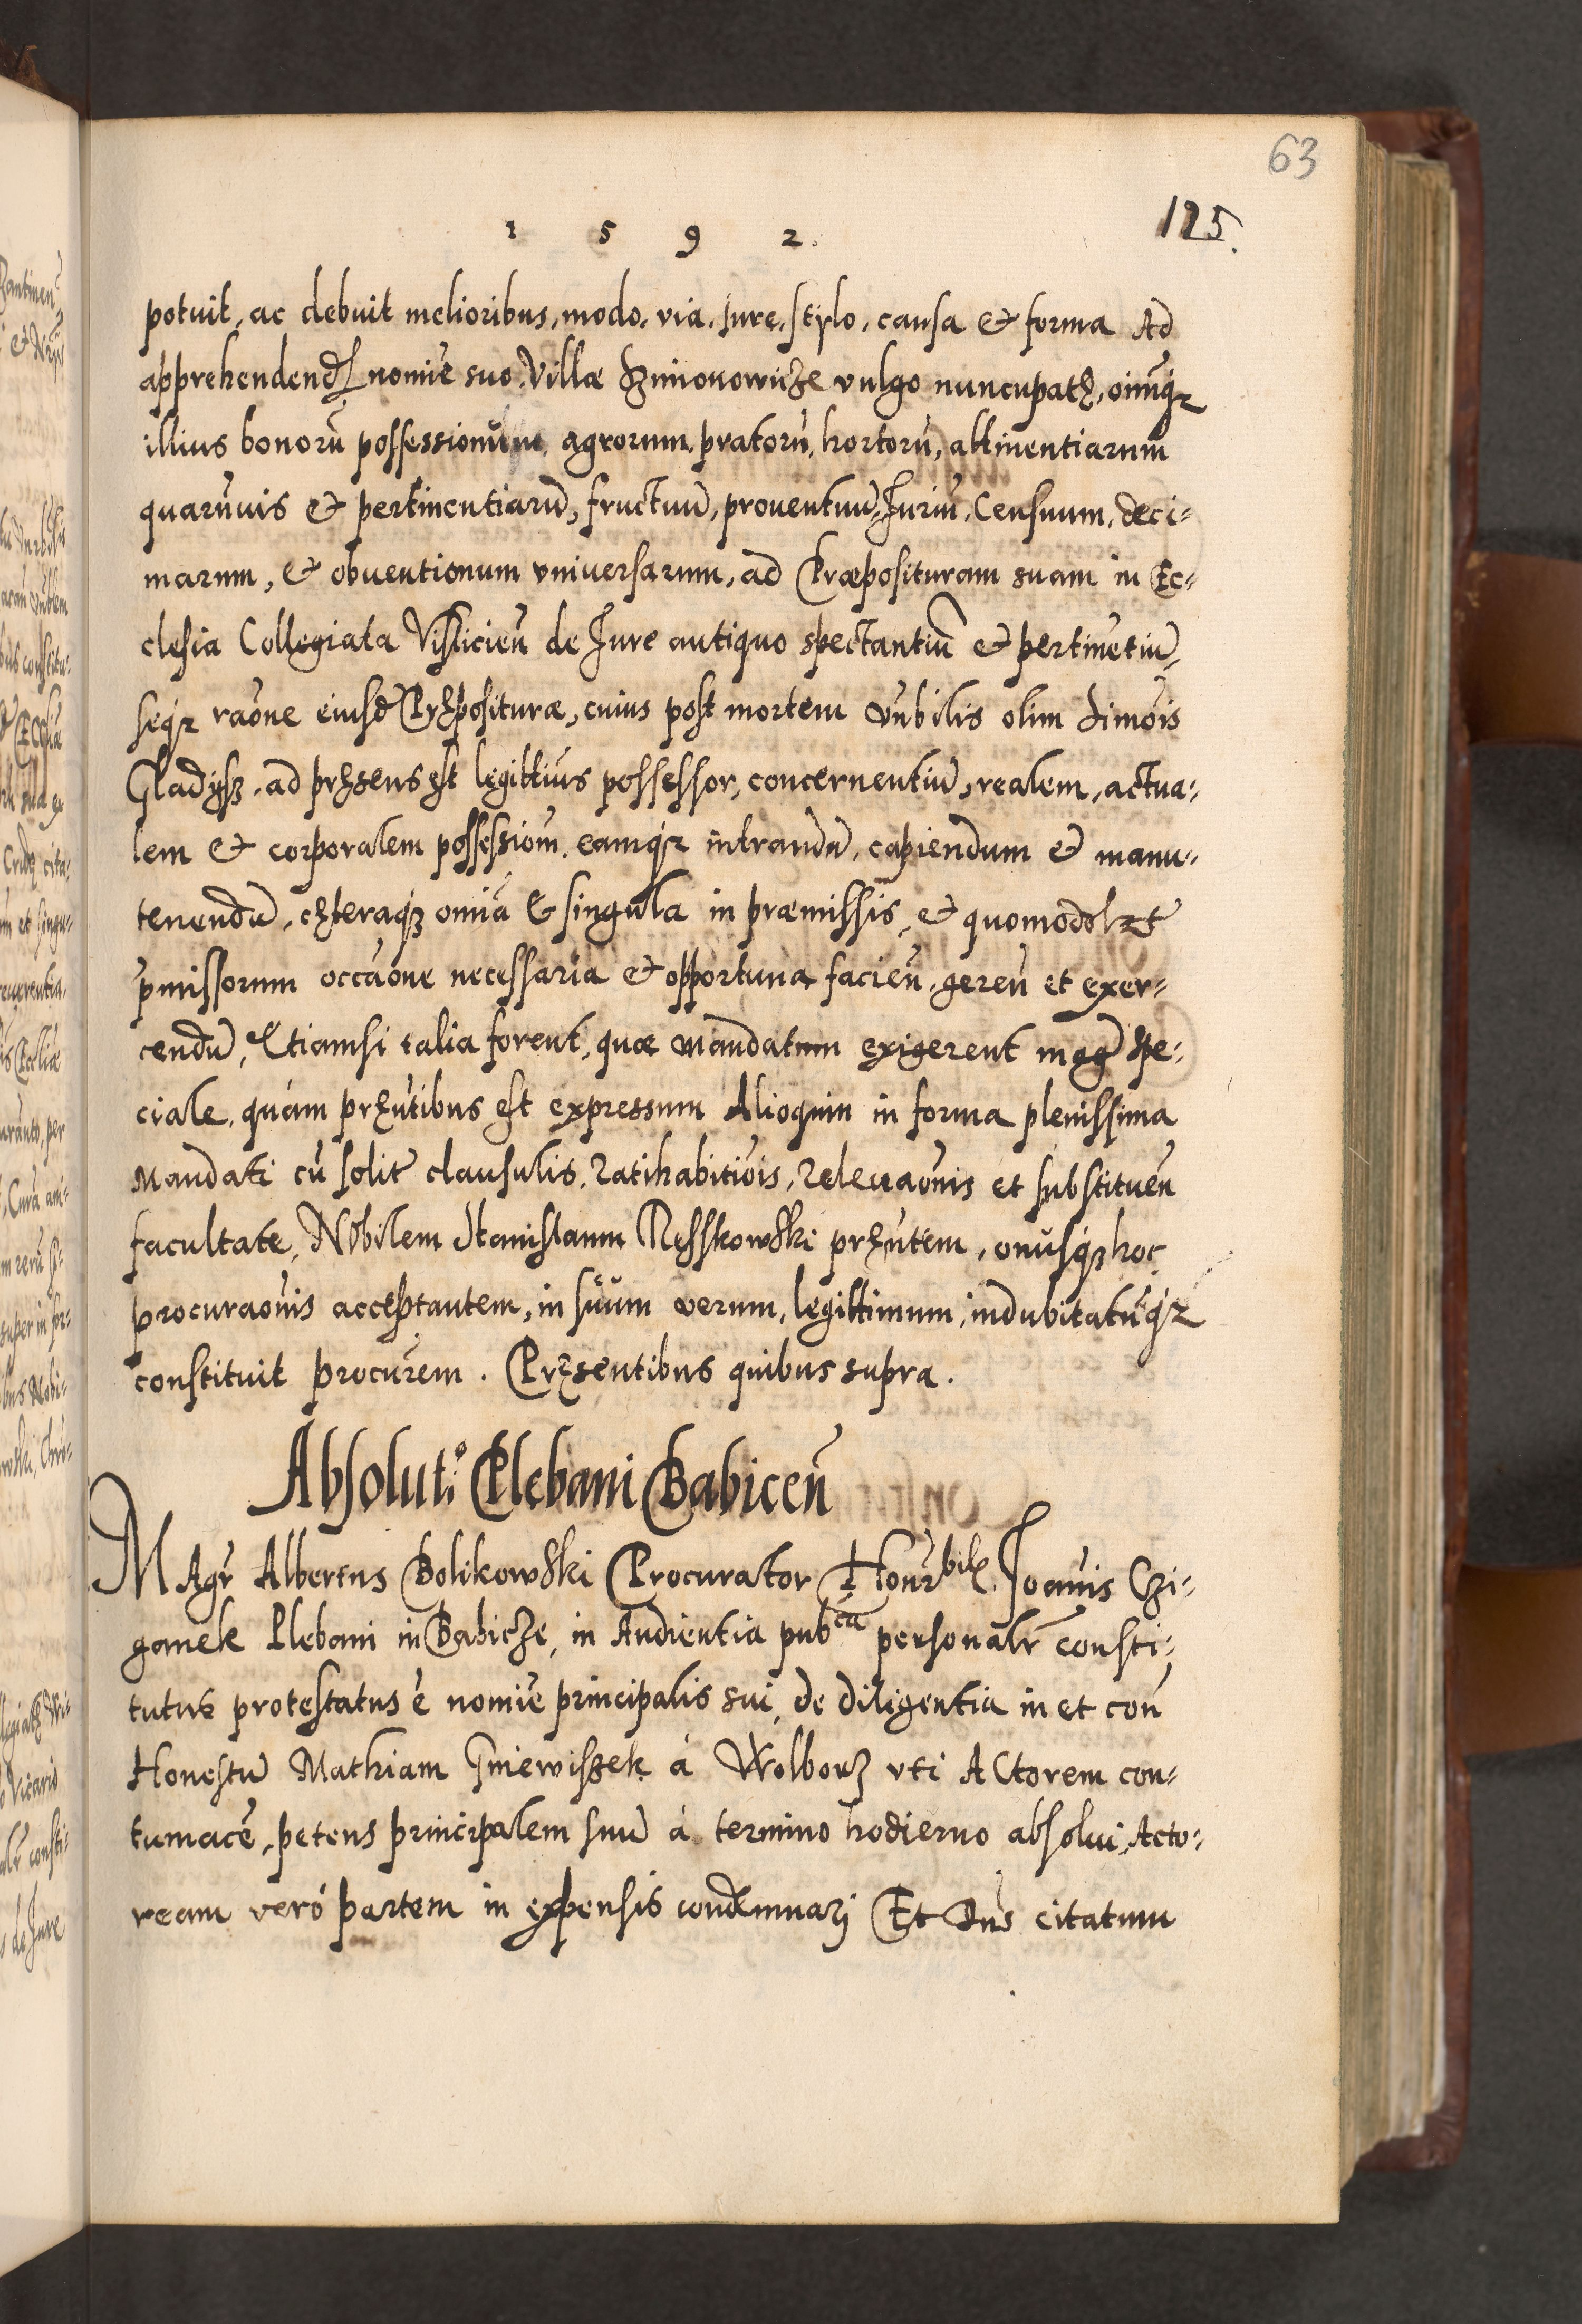 63
125.
1 5 9 2.
potuit, ac debuit melioribus, modo, via, iure, stylo, causa & forma Ad
apprehendend nomīe suo Villæ Szimonowicze vulgo nuncupatę, oīmq3
illius bonorū possessionum, agrorum, pratorū, hortorū, attinentiarum
quarūvis & pertinentiarū, fructuū, proventuū, Iuriū, Censuum, deci-
marum, & obventionum universarum, ad Præposituram suam in Ec-
clesia Collegiata Visliciēn de Iure antiquo spectantiū & pertinētiū,
seq3 rāone eiusd Pręposituræ, cuius post mortem Vn̄bilis olim Simōis
Gladysz, ad pręsens est legittīus possessor, concernentiū, realem, actua-
lem & corporalem possessiōm, eamq3 intrandū, capiendum & manu-
tenendū, cęteraq3 omīa & singula in præmissis, & quomodolzt
p̄missorum occāone necessaria & opportuna faciēn, gerēn et exer-
cendū, Etiamsi talia forent, quæ mandatum exigerent mag̅ spe-
ciale, quàm pręn̄tibus est expressum Alioquin in forma plenissima
Mandati cū solit clausulis, ratihabitiōis, relevaōnis et substituēn
facultate, Nobilem Stanislaum Resskowski pręn̄tem, onusq3 hoc
procuraōnis acceptantem, in sŭum verum, legittimum, indubitatūq3
constituit procūrem. Pręsentibus quibus supra.
Absolut.º Plebani Babicēn
MAgr̄ Albertus Bolikowski Procurator Honr̄bil Ioannis Czi-
ganek Plebani in Babicze, in Audientia pub^ca personalr̄ consti-
tutus protestatus ē nomīe principalis sui, de diligentia in et coñ
Honestū Mathiam Gniewiszek à Wolborz uti ACtorem con-
tumacē, petens principalem suū à termino hodierno absolui, Acto-
ream verò partem in expensis condemnari Et Dn̄s citatum